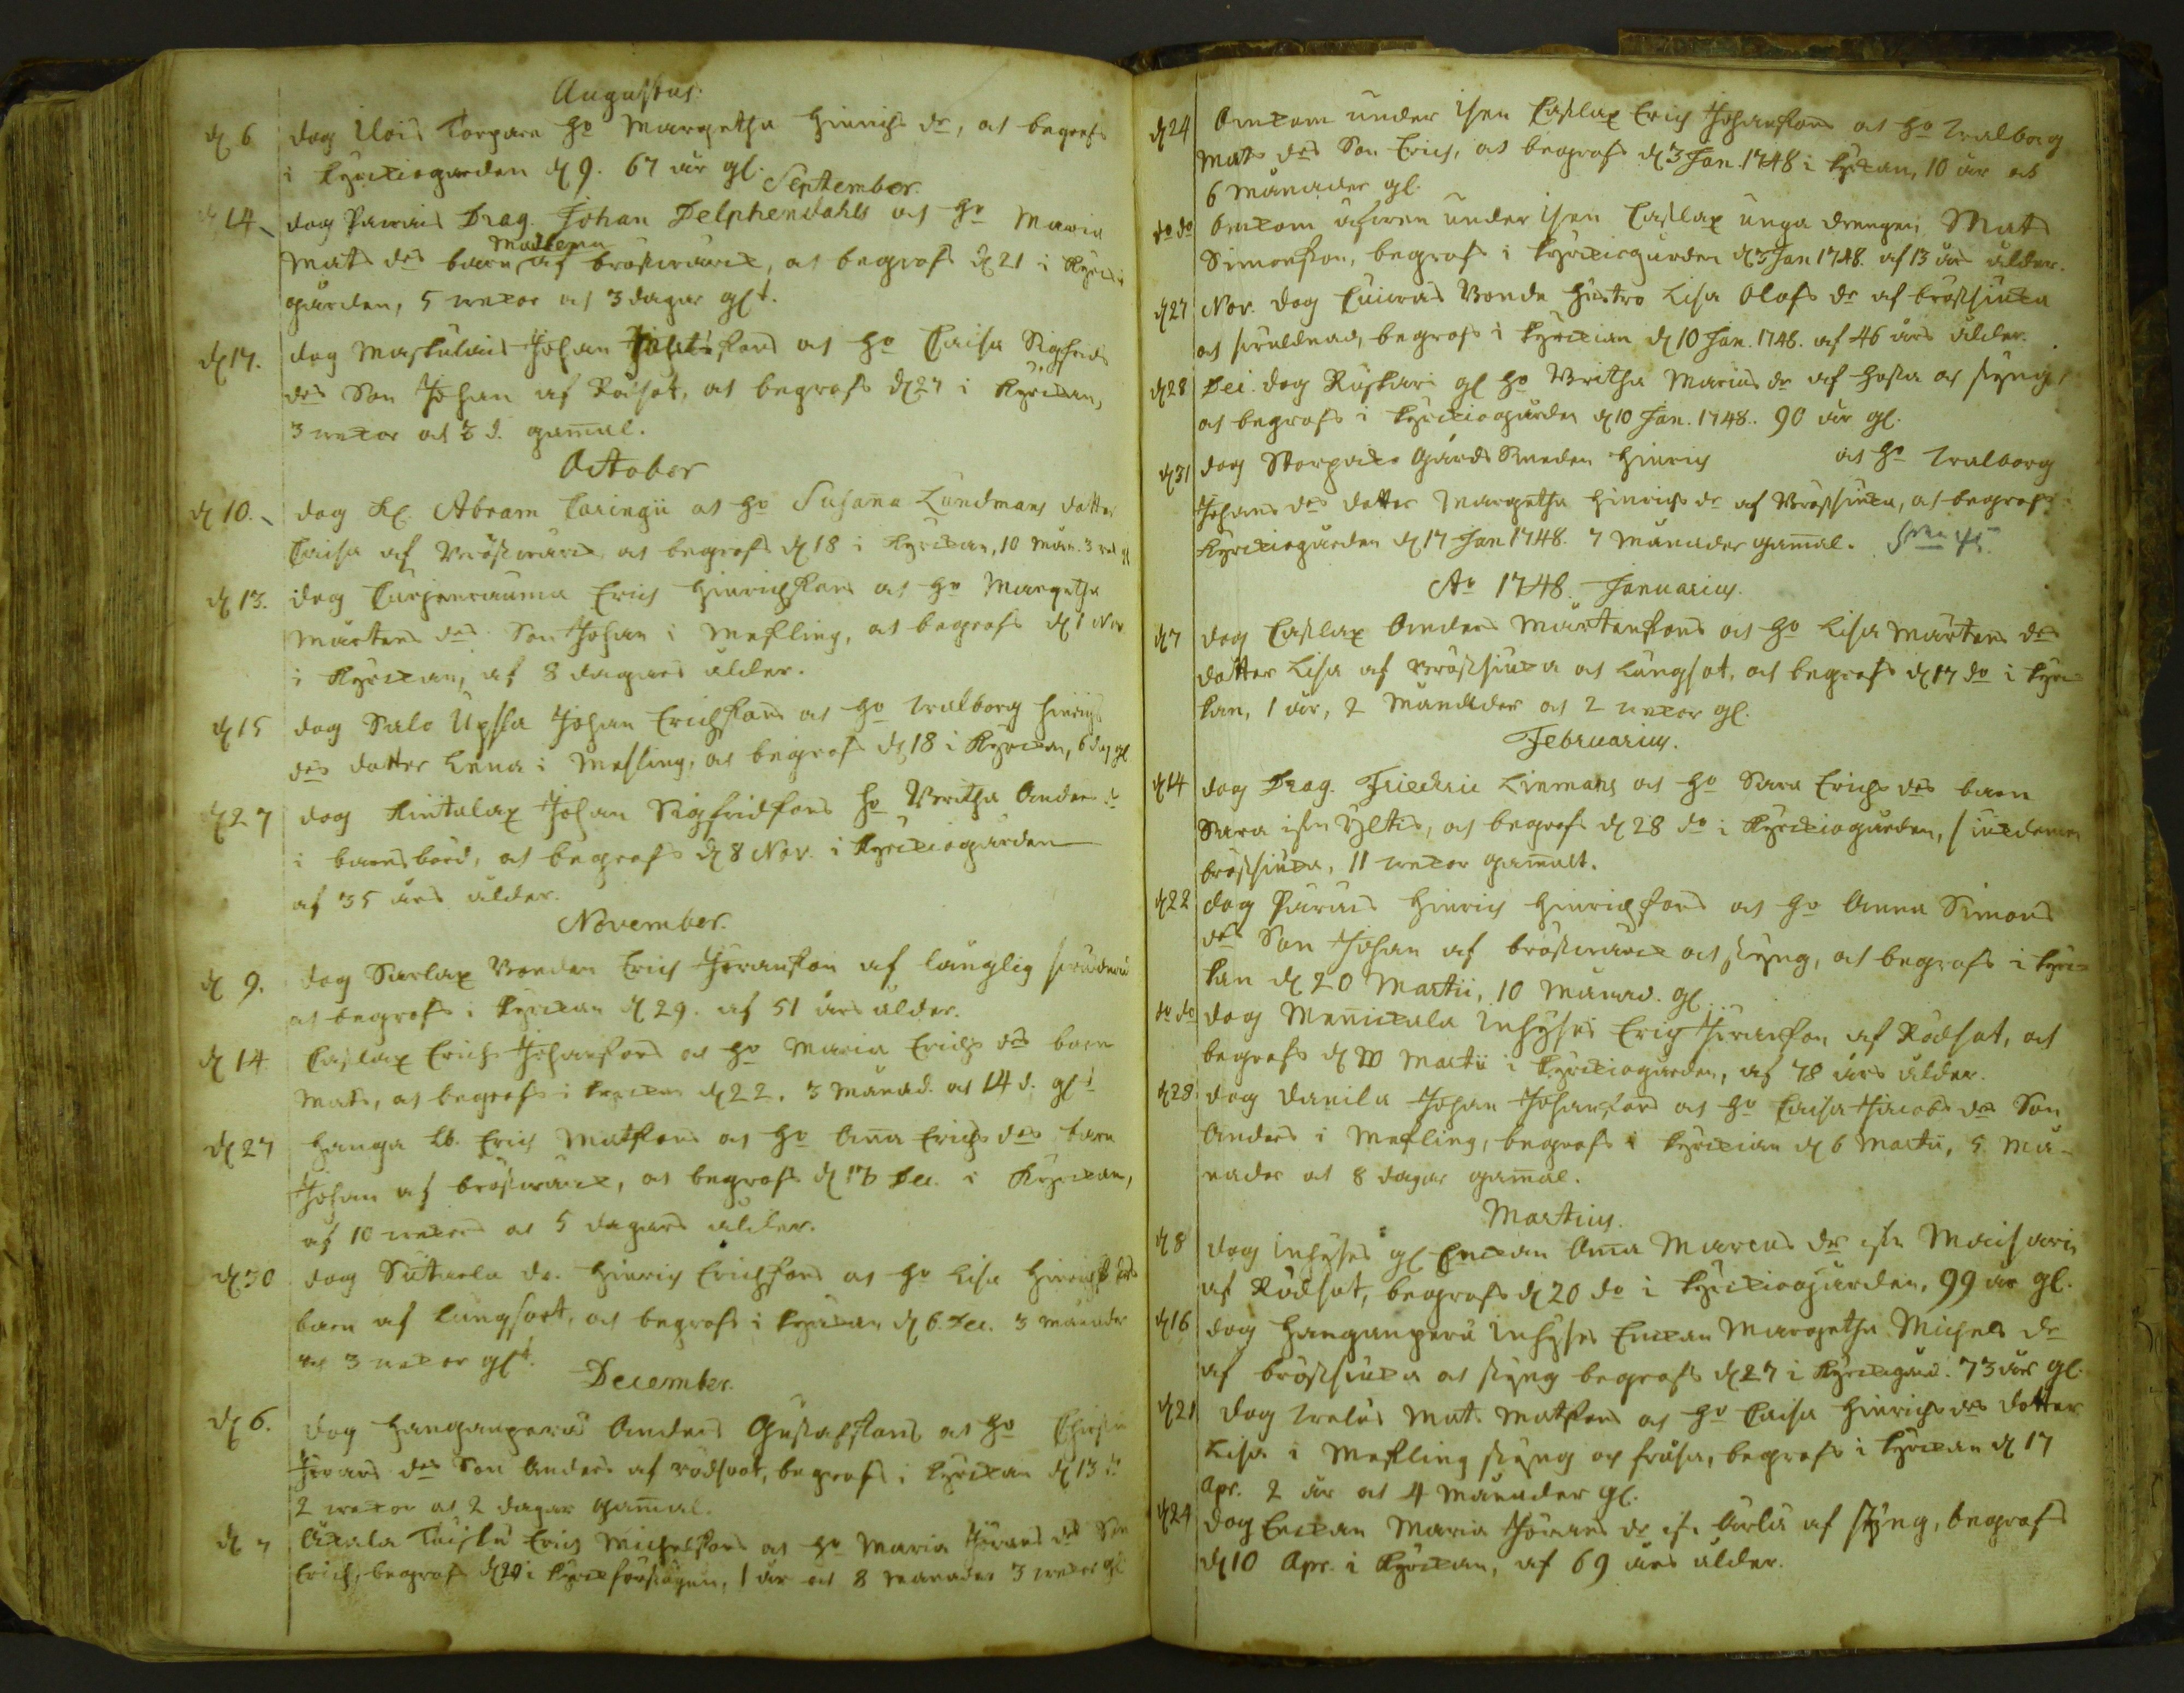 Augustus.
d. 6 dog Torpare ho Margetha Hinrichs dr, ok begrofs
i Kyrkiogården d. 9. 67 år gl.
September.
14. dog Drag. Johan Delphendahls ok ho Maria
Mats drs barn af bröstwärck, ok begrofs d. 21 i Kyrkio
gården, 5 wekor ok 3 dagar glt.
d. 17. dog Johan ok ho Caisa Sigfrids
drs Son Johan af Rödsot, ok begrofs d. 27 i Kyrckan,
3 wekor ok 3 d. gamal.
October
d. 10. dog Abram Caringii ok ho Susanna Lundmans dotter
Caisa af Bröstwärck ok begrofs d. 18 i Kyrckan, 10 mån. 3 gl
d. 13. dog Erich Hinrichsons ok ho Margetha
Mårtens drs Son Johan i Messling, ok begrofs d. 1 Nov.
i Kyrckan, af 8 dagars ålder.
d. 15 dog Salo Upsla Johan Erichsons ok ho Walborg Hinrichs
drs dotter Lena i Messling, ok begrofs d. 18 i Kyrckan, 6 dag. gl
d. 27 dog Kintalax Johan Sigfridsons ho Britha Anders dr
i barnsbörd, ok begrofs d. 8 Nov. i Kyrckiogården
af 35 års ålder.
November.
d. 9. dog Sarlax Bonden Erich Jöransson af långlig
ok begrofs i Kyrckan d. 29. af 51 års ålder.
d. 14 Caslax Erich Johansons ok ho Maria Erichs drs barn
Mats, ok begrofs i Kyrckan d. 22. 3 månad. ok 14 d. glt
d. 27 Hanga Erich Matsons ok ho Anna Erichs drs barn
Johan af bröstwärck, ok begrofs d. 13 Dec. i Kyrckan,
af 10 wekors ok 5 dagars ålder.
d. 30 dog Sutarla Hinrich Erichsons ok ho Lisa Hinrichs drs
barn af lungsoot, ok begrofs i Kyrckan d. 6. Dec. 3 månader
ok 3 wekor glt.
December.
d. 6. dog Hanganperä Anders Gustafsons ok ho
Jörans drs Son Anders af rödsoot, begrofs i Kyrckan d. 13
2 wekor ok 2 dagar gamal.
d. 7 Erich Michelsons ok ho Maria Jörans drs Son
Erich, begrofs d. 20 i, 1 år ok 8 månader 3 wekor gl
d. 24 Omkom under isen Caslax Erich Johansons ok ho Walborg
Mats drs Son Erich, ok begrofs d. 3 Jan. 1748 i Kyrckan, 10 år ok
6 månader gl.
do do Omkom under isen Caslax unga drengen Mats
Simonsson, begrofs i Kyrckiogården d. 3 Jan 1748. af 13 års ålder.
d. 27 Nov. dog Bonde hustro Lisa Olofs dr af bröstsiuka
ok, begrofs i Kyrckian d. 10 Jan. 1748. af 46 års ålder.
d. 28 Dec. dog Ruskari gl ho Britha Marcus dr af hosta ok styng,
ok begrofs i Kyrckiogården d. 10 Jan. 1748. 90 år gl.
d. 31 dog Gårds Smeden Hinrich ok ho Walborg
Johans drs dotter Margetha Hinrichs dr af Bröstsiuka, ok begrofs
Kyrckiogården d. 17 Jan 1748. 7 månader gamal.
Ao 1748. Januarius.
d. 7 dog Caslax Anders Mårtensons ok ho Lisa Mårtens drs
dotter Lisa af Bröstsiuka ok lungsot, ok begrofs d. 17 do i Kyrc-
kan, 1 år, 2 månader ok 2 wekor gl.
Februarius.
d. 14 dog Drag. Friedric Linmans ok ho Sara Erichs drs barn
Sara, ok begrofs d. 28 do i Kyrckiogården,
bröstsiuka, 11 wekor gamalt.
d. 22 dog Hinrich Hinrichsons ok ho Anna Simons
drs Son Johan af bröstwärck ok styng, ok begrofs i Kyrc-
kan d. 20 Martii, 10 månad. gl.
do do dog Inhyses Erich Jöranson af Rödsot, ok
begrofs d. 20 Martii i Kyrckiogården, af 78 års ålder.
d. 28 dog Danila Johan Johansons ok ho Caisa Jacobs drs Son
Anders i Messling, begrofs i Kyrckian d. 6 Martii, 5 må-
nader ok 8 dagar gamal.
Martius.
d. 8 dog Inhyses gl Enckan Anna Marcus dr
af Rödsot, begrofs d. 20 do i Kyrckiogården, 99 år gl.
d. 16 dog Hanganperä Inhyses Enckan Margetha Michels dr
af bröstsiuka ok styng begrofs d. 27 i Kyrckgård. 73 år gl.
d. 21 dog Mats Matsons ok ho Caisa Hinrichs drs dotter
Lisa i Messling styng ok fråsa, begrofs i Kyrckan d. 17
Apr. 2 år ok 4 månader gl.
d. 24 dog Enckan Maria Jörans dr af styng, begrofs
d. 10 Apr. i Kyrckan, af 69 års ålder.